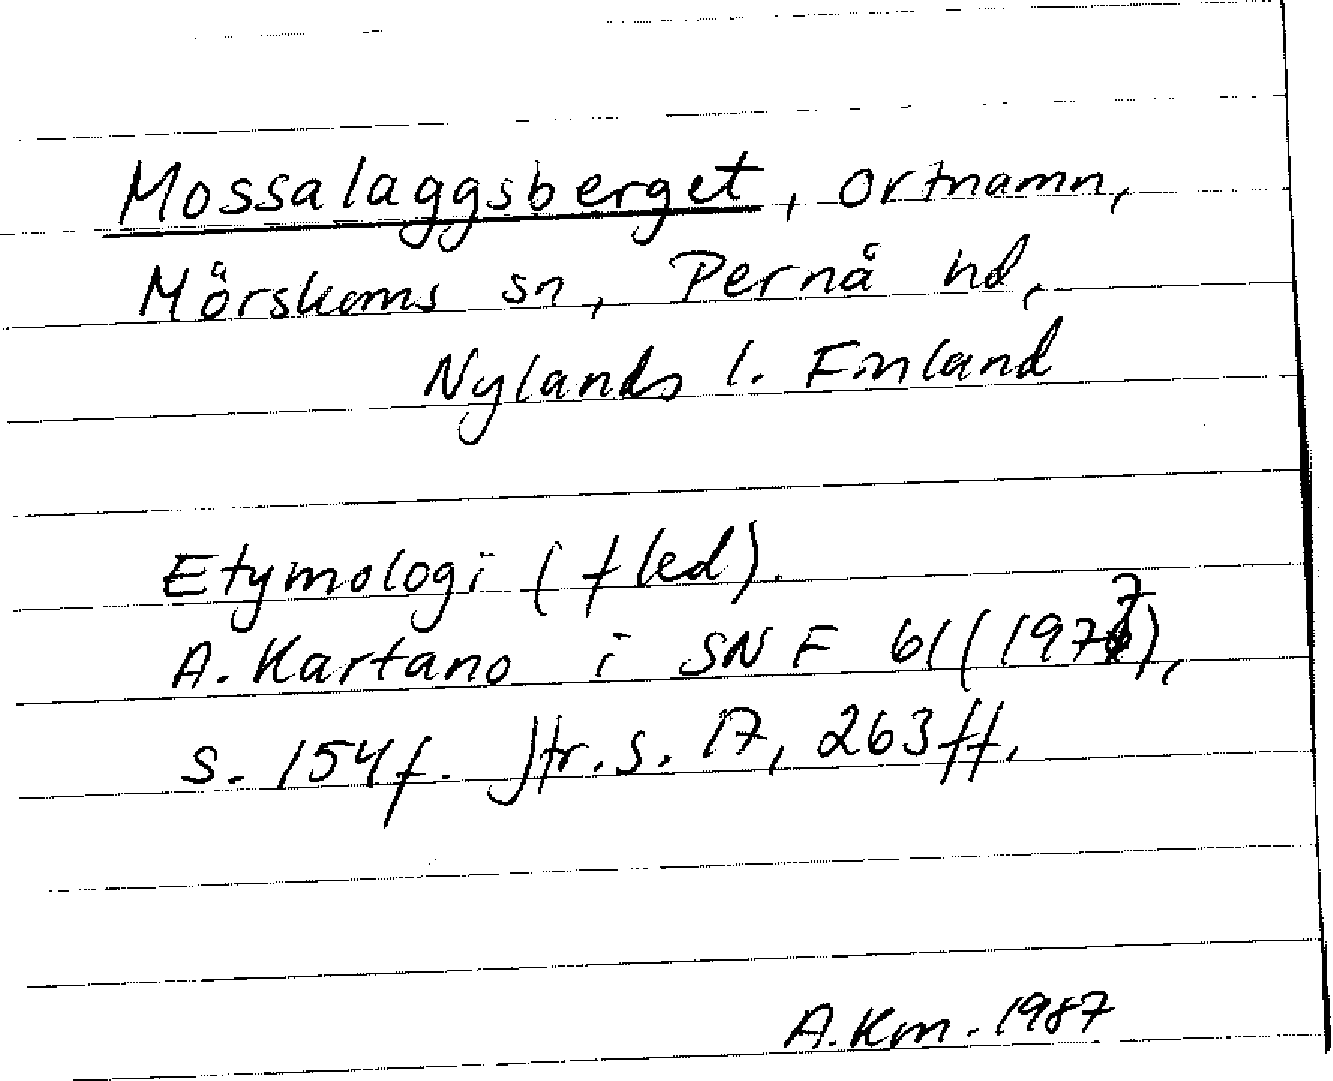 Mossalaggsberget, ortnamn,
Mörskoms sn, Pernå hd,
Nylands l. Finland
Etymologi (fled).
A. Kartano i SNF 61 (1977),
s. 154f. Jfr. s. 17, 263ff.
A. Km. 1987